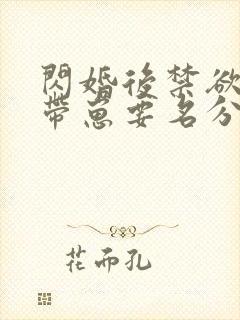 閃婚後禁欲
帶崽要名分
花而孔